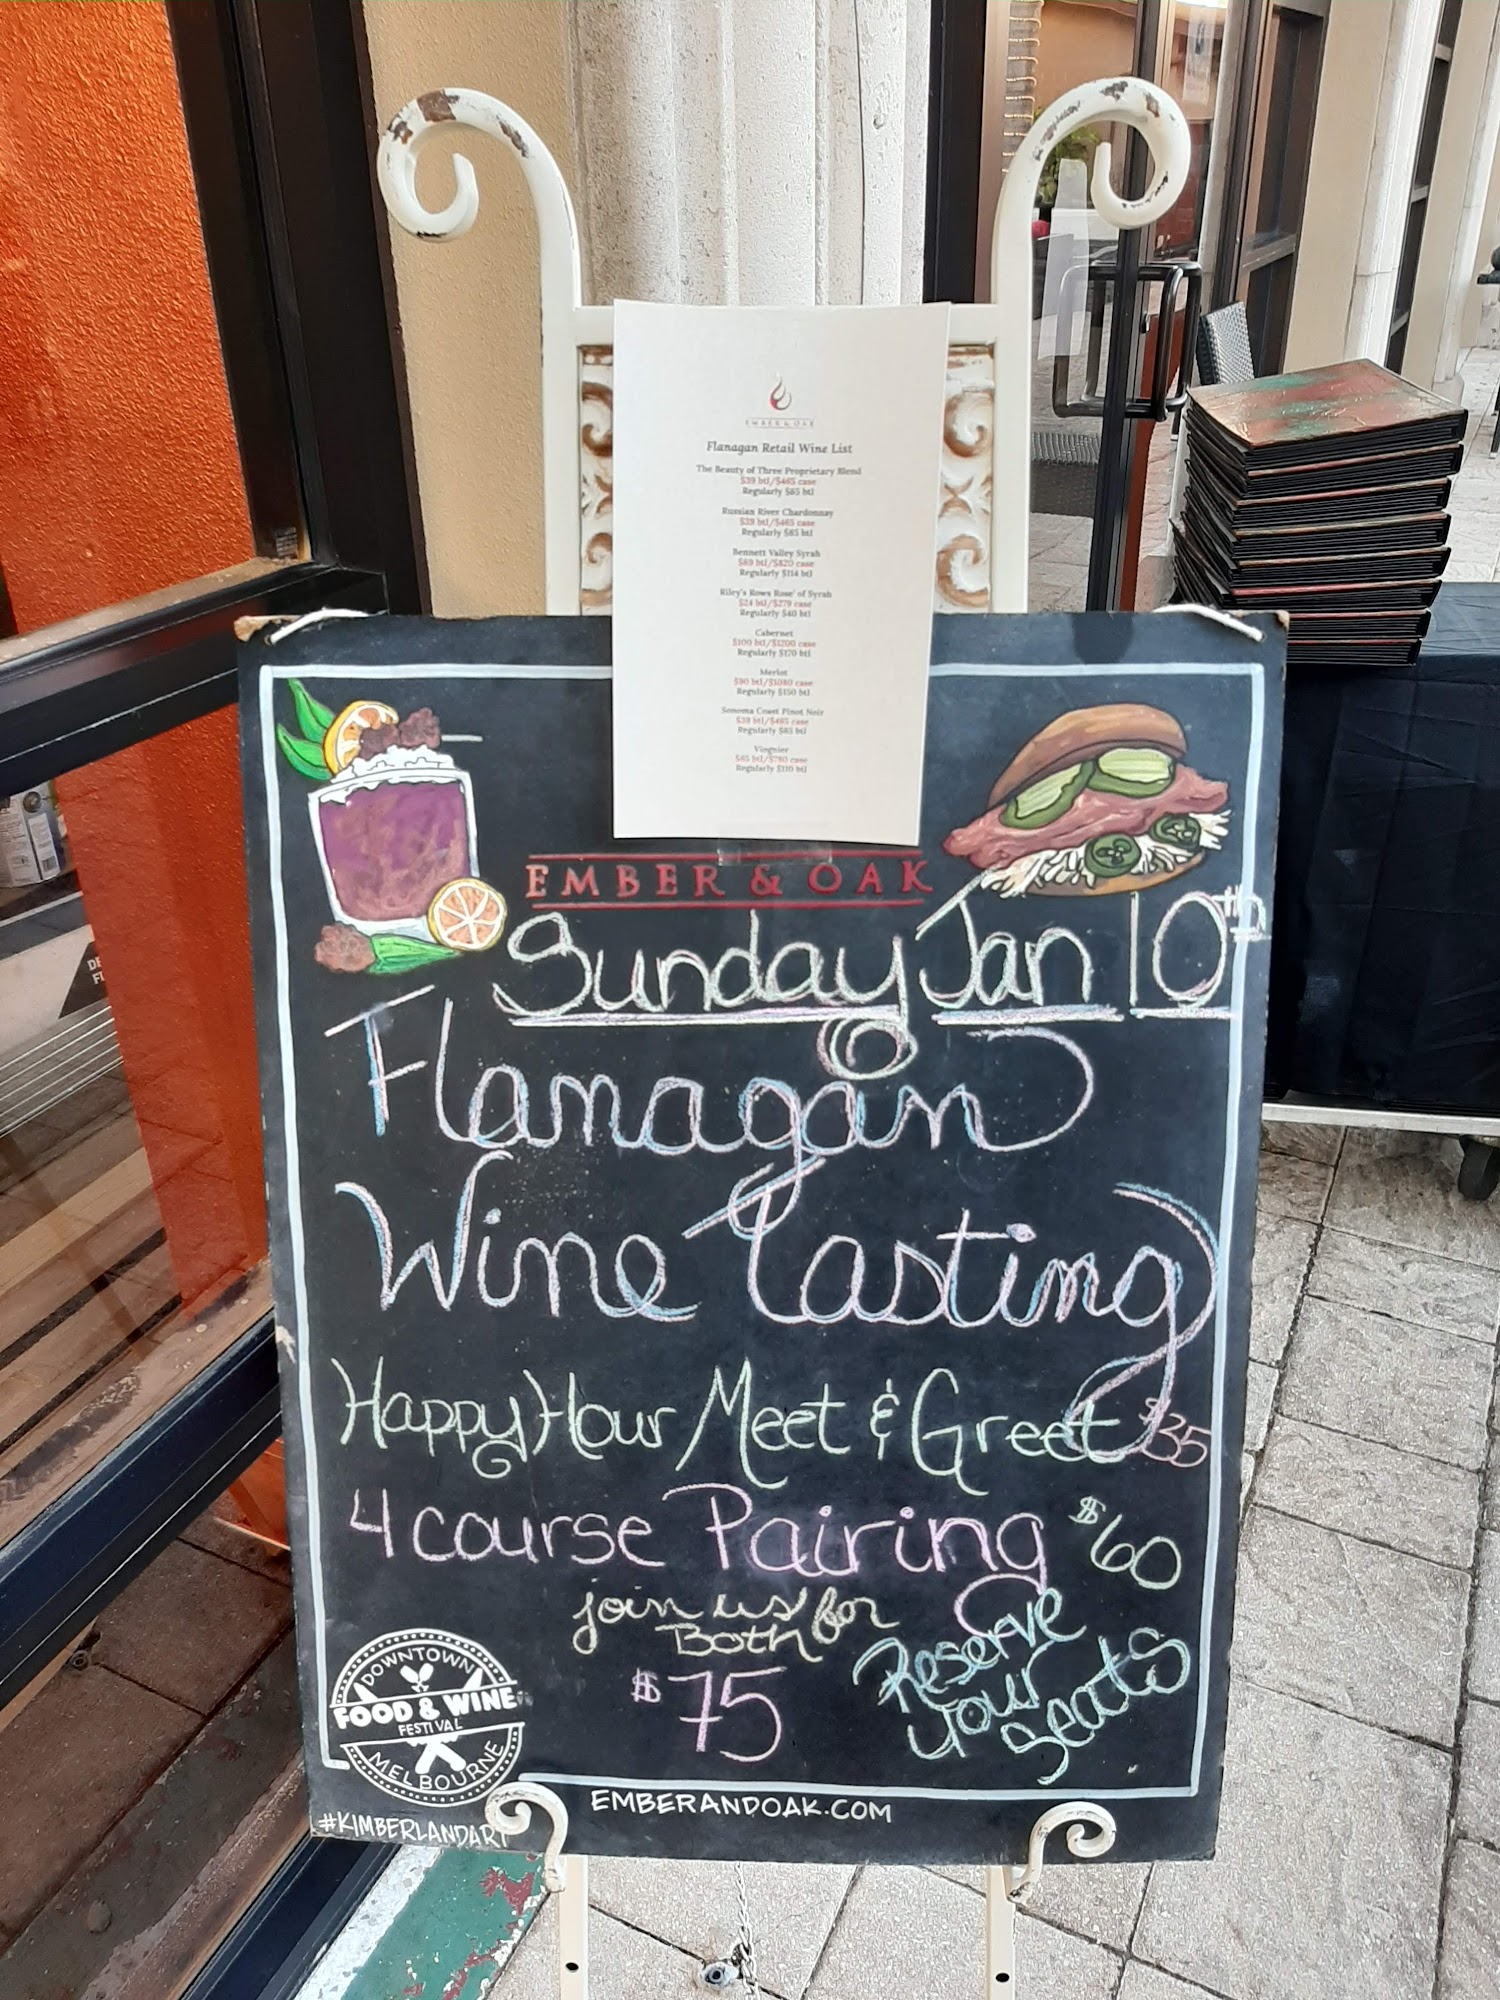 EMBER & OAK
Flanagan Retail Wine List
The Beauty of Three Proprietary Blend
$39 btl/$465 case
Regularly $65 btl
Russian River Chardonnay
$39 btl/$465 case
Regularly $65 btl
Bennett Valley Syrah
$69 btl/$820 case
Regularly $114 btl
Riley's Rows Rose' of Syrah
$24 btl/$279 case
Regularly $40 btl
Cabernet
$100 btl/$1200 case
Regularly $170 btl
Merlot
$90 btl/$1080 case
Regularly $150 btl
Sonoma Coast Pinot Noir
$39 btl/$465 case
Regularly $65 btl
Viognier
$65 btl/$780 case
Regularly $110 btl
EMBER & OAK
Sunday Jan 10th
Flanagan
Wine Tasting
Happy Hour Meet & Greet $35
4 course Pairing $60
join us for
Both
$75
Reserve
your
Seats
DOWNTOWN
FOOD & WINE
FESTIVAL
MELBOURNE
EMBERANDOAK.COM
#KIMBERLANDART